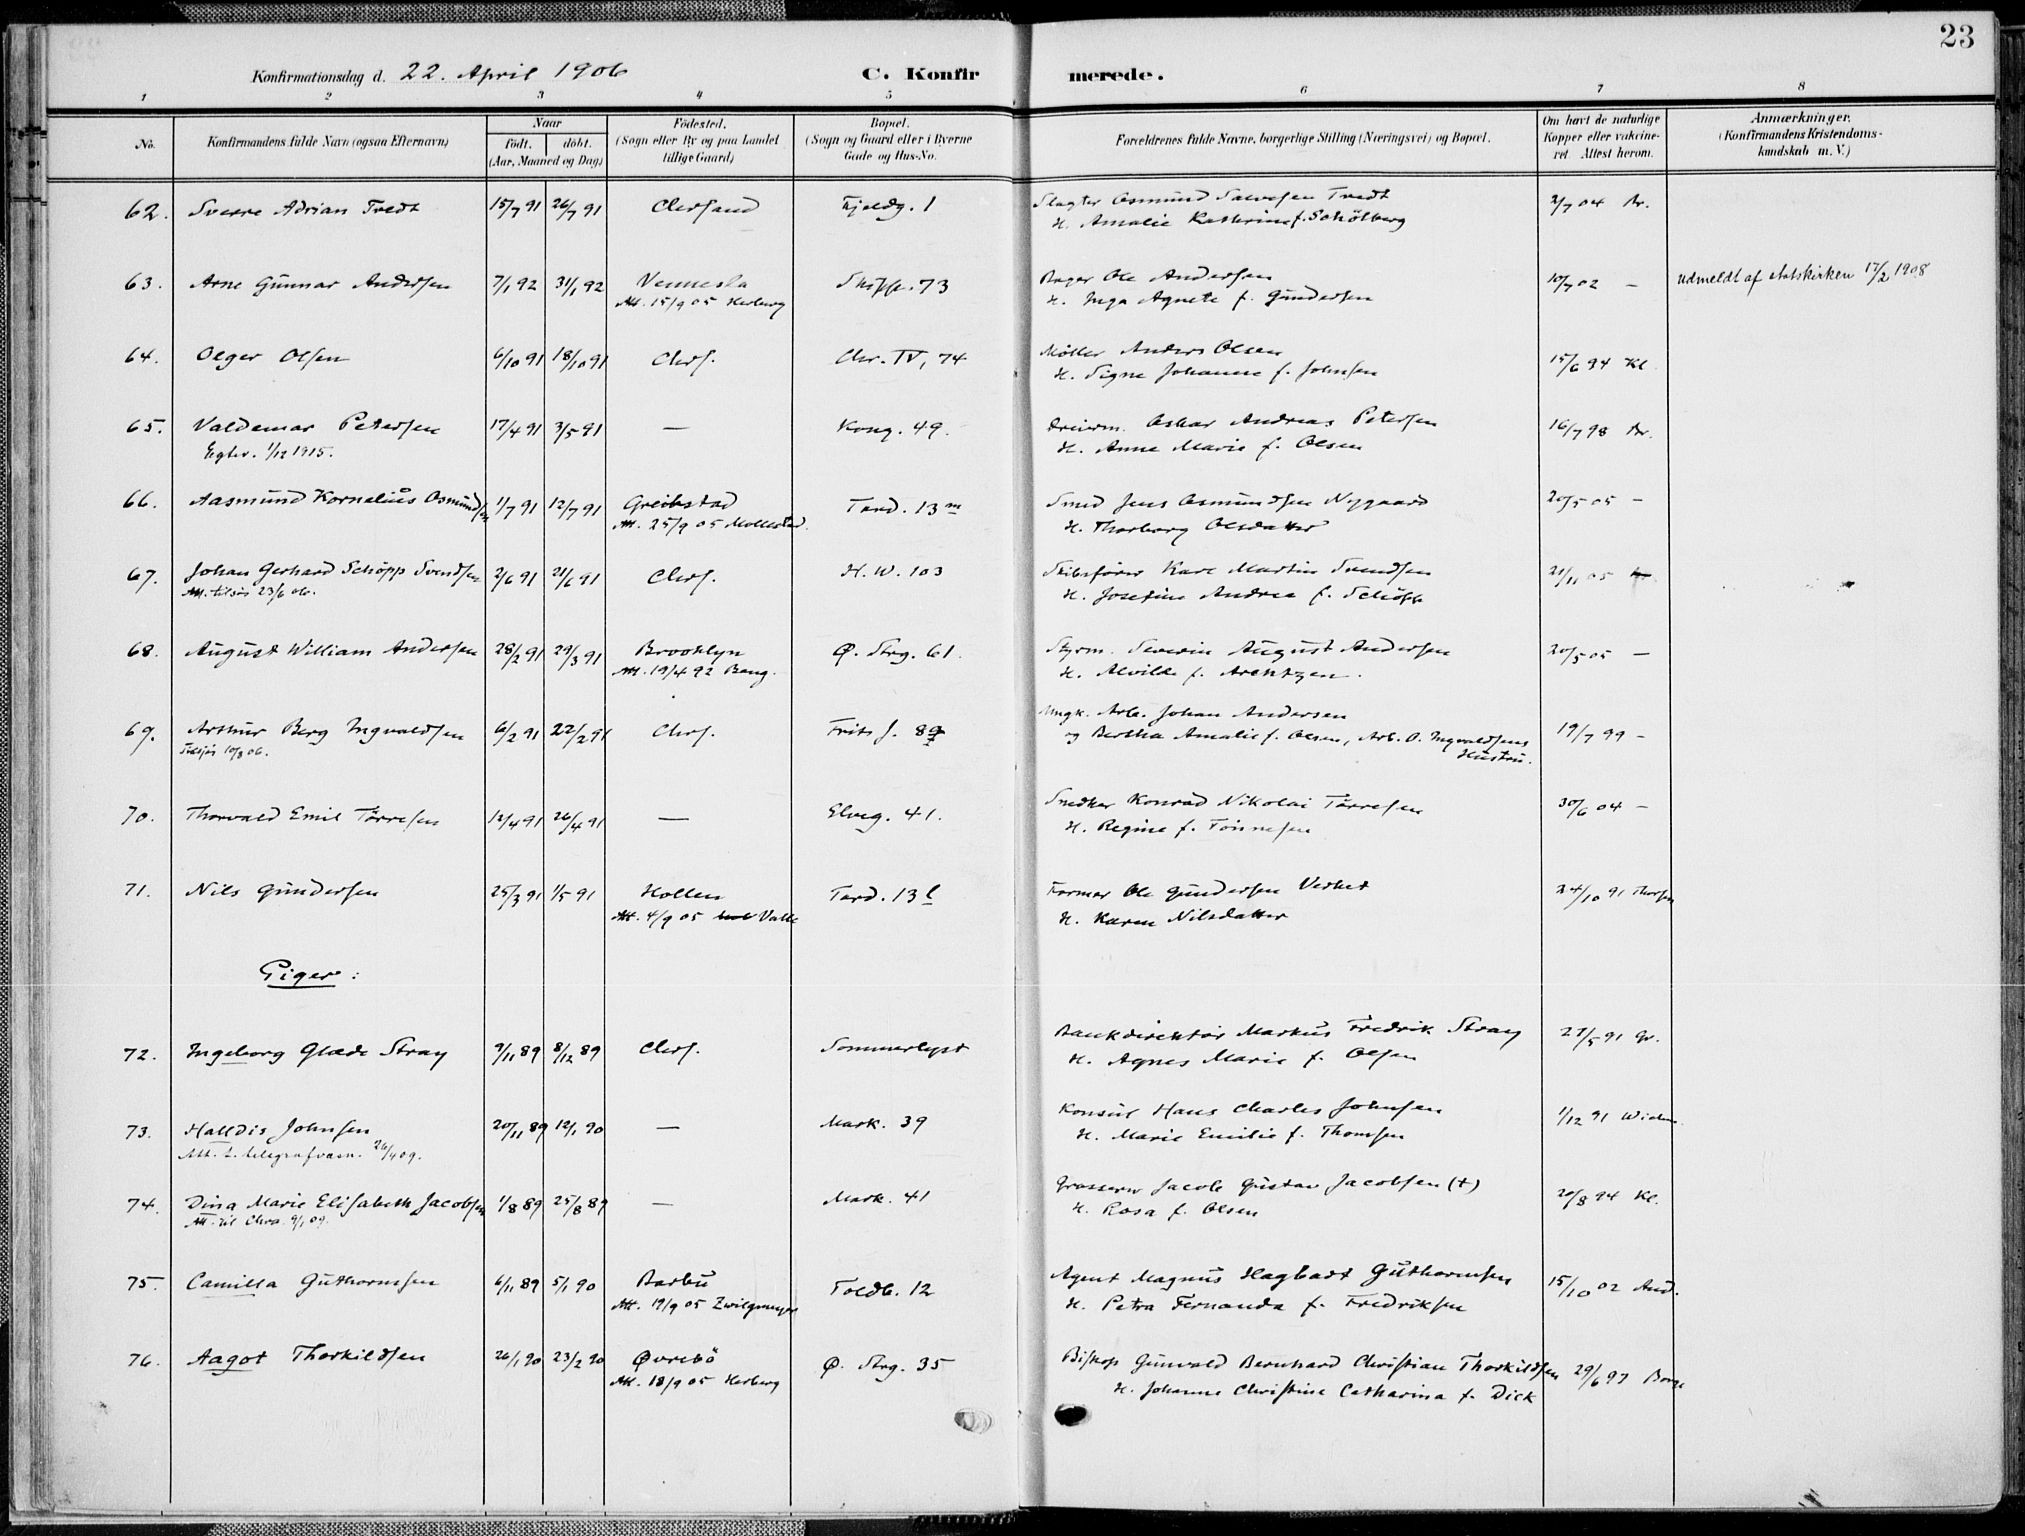 23
Konfirmationsdag d. 22. April 1906 C. Konfir merede.
1 2 3 4 5 6 7 8
No. Konfirmandens fulde Navn (ogsaa Efternavn) Naar født. døbt. (Aar, Maaned og Dag) Fødested. (Sogn eller By og paa Landet tillige Gaard) Bopæl. (Sogn og Gaard eller i Byerne Gade og Hus-No. Forældrenes fulde Navne, borgerlige Stilling (Næringsvei) og Bopæl. Om havt de naturlige Kopper eller vakcineret. Attest herom. Anmærkninger. (Konfirmandens Kristendomskundskab m. V.)
62. Sverre Adrian Tvedt 15/7 91 26/7 91 Chrsand Fjeldg. 1 Slagter Osmund Salvesen Tvedt 2/7 04 Br.
H. Amalie Kathrine f. Schölberg
63. Arne Gunnar Andersen 7/1 92 31/1 92 Vennesla Skipp. 73 Bager Ole Andersen 10/7 02 — Udmeldt af statskirken 17/2 1908
Att. 15/9 05 Herberg H. Inga Agnete f. Gundersen
64. Olger Olsen 6/10 91 18/10 91 Chrs. Chr. IV, 74 Møller Anders Olsen 15/6 94 Kl
H. Signe Johanne f. Johnsen
65. Valdemar Petersen 17/4 91 3/5 91 — Kong. 49. Oskar Andreas Petersen 16/7 98 Br.
1/12 1915. H. Anne Marie f. Olsen
66. Aasmund Kornelius Osmundsen 1/7 91 12/7 91 Greibstad Tord. 13 m Smed Jens Osmundsen Nygaard 20/5 05 —
Att. 25/9 05 Mollestad. H. Thorborg Olsdatter
67. Johan Gerhard Schöpp Svendsen 2/6 91 21/6 91 Chrs. H. W. 103 Skibsfører Karl Martin Svendsen 21/11 05
Att. tilsjøs 23/6 06. H. Josefine Andrea f. Schöpp
68. August William Andersen 28/2 91 29/3 91 Brooklyn Ø. Strg. 61. Styrm. Severin August Andersen 20/5 05 —
Att. 19/4 92 Bang. H. Alvilde f. Arentzen.
69. Arthur Berg Ingvaldsen 6/2 91 22/2 91 Chrs. Frits J. 89 Ungk. Arb. Johan Andersen 19/7 99 —
Tilsjøs 10/8 06. og Bertha Amalie f. Olsen, Arb. O. Ingvaldsens
Hustru.
70. Thorvald Emil Tørresen 12/4 91 26/4 91 — Elveg. 41. Snedker Konrad Nikolai Tørresen 30/6 04 —
H. Regine f. Tönnesen
71. Nils Gundersen 25/3 91 1/5 91 Hollen Tord. 13 l Farmer Ole Gundersen Verhet 24/10 91
Att. 4/9 05 Valle H. Karen Nilsdatter
Piger:
72. Ingeborg Glæde Stray 9/11 89 8/12 89 Chrs. Sommerlyst Bankdirektör Markus Fredrik Stray 27/5 91 Gr.
H. Agnes Marie f. Olsen
73. Halldis Johnsen 20/11 89 12/1 90 — Mark. 39 Konsul Hans Charles Johnsen 1/12 91
Att. t. telegrafvæsn. 26/4 09. H. Marie Emilie f. Thomsen
74. Dina Marie Elisabeth Jacobsen 1/8 89 25/8 89 — Mark. 41 Grosserer Jacob Gustav Jacobsen (†) 20/8 94 Kl.
Att. til Chra. 9/1 09. H. Rosa f. Olsen
75. Camilla Guthormsen 6/11 89 5/1 90 Barbu Toldb. 12 Agent Magnus Hagbart Guthormsen 15/10 02 And.
Att. 19/9 05 Zwilgmeyer H. Petra Fernanda f. Fredriksen
76. Aagot Thorkildsen 26/1 90 23/2 90 Øvrebö Ø. Strg. 35 Biskop Gunvald Bernhard Christian Thorkildsen 29/6 97
Att. 18/9 05 Herberg H. Johanne Christine Catharina f. Dick